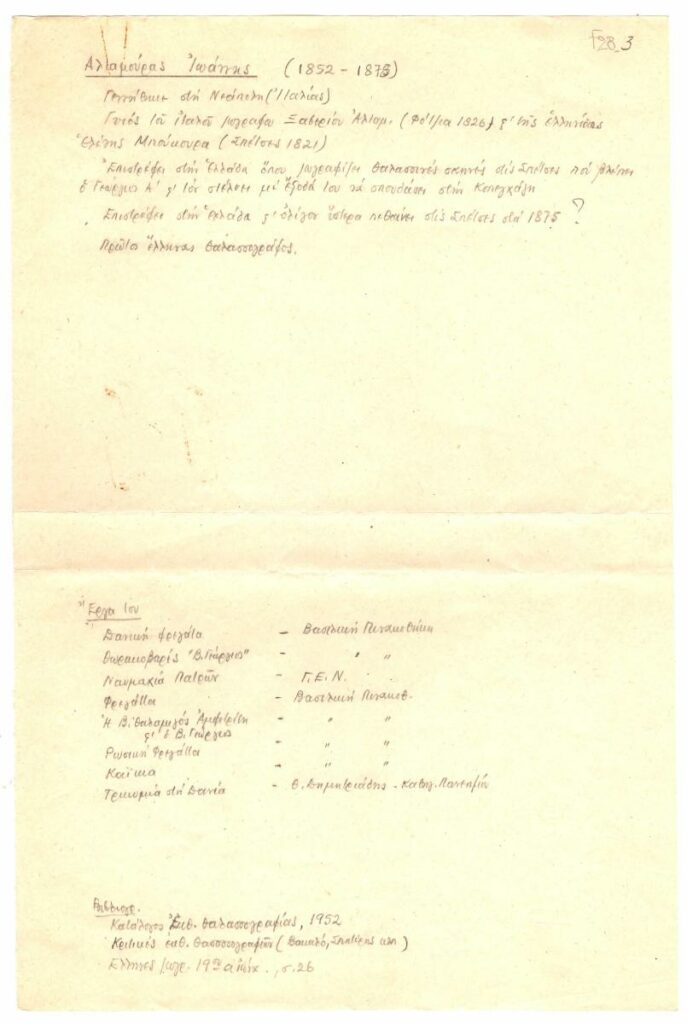 F28.3
Αλταμούρας Ἰωάννης (1852 - 1875)
Γεννήθηκε στή Νεάπολη (Ἰταλίας)
Γυιός τοῦ ἰταλοῦ ζωγράφου Ξαβερίου Ἀλταμ. (Φότζια 1826) ϗ' τῆς ἑλληνίδας
Ἑλένης Μπούκουρα (Σπέτσες 1821)
Ἐπιστρέφει στήν Ἑλλάδα ὅπου ζωγραφίζει θαλασσινές σκηνές στίς Σπέτσες πού βλέπει
ὁ Γεώργιος Α' ϗ' τόν στέλνει μέ ἔξοδά του νά σπουδάσει στήν Κοπεγχάγη
Ἐπιστρέφει στήν Ἑλλάδα ϗ' ὀλίγον ὕστερα πεθαίνει στίς Σπέτσες στά 1875 ?
Πρῶτος ἕλληνας θαλασσογράφος.
Ἔργα του
Δανική φρεγάτα - Βασιλική Πινακοθήκη
Θωρακοβαρίς "Β. Γεώργιος" - " "
Ναυμαχία Πατρῶν - Γ.Ε.Ν.
Φρεγάτα - Βασιλική Πινακοθ.
Ἡ Β. θαλαμηγός Ἀμφιτρίτη - " "
ϗ' ὁ Β. Γεώργιος
Ρωσική Φρεγάτα - " "
Καΐκια - " "
Τρικυμία στή Δανία - Θ. Δημητριάδης - Καθηγ. Πανεπ/μίου
Βιβλιογρ.
Κατάλογος Ἐκθ. θαλασσογραφίας, 1952
Κριτικές ἐκθ. (Βακαλό, Σπητέρης κλπ)
Ἕλληνες ζωγρ. 19ου αἰῶν., σ. 26